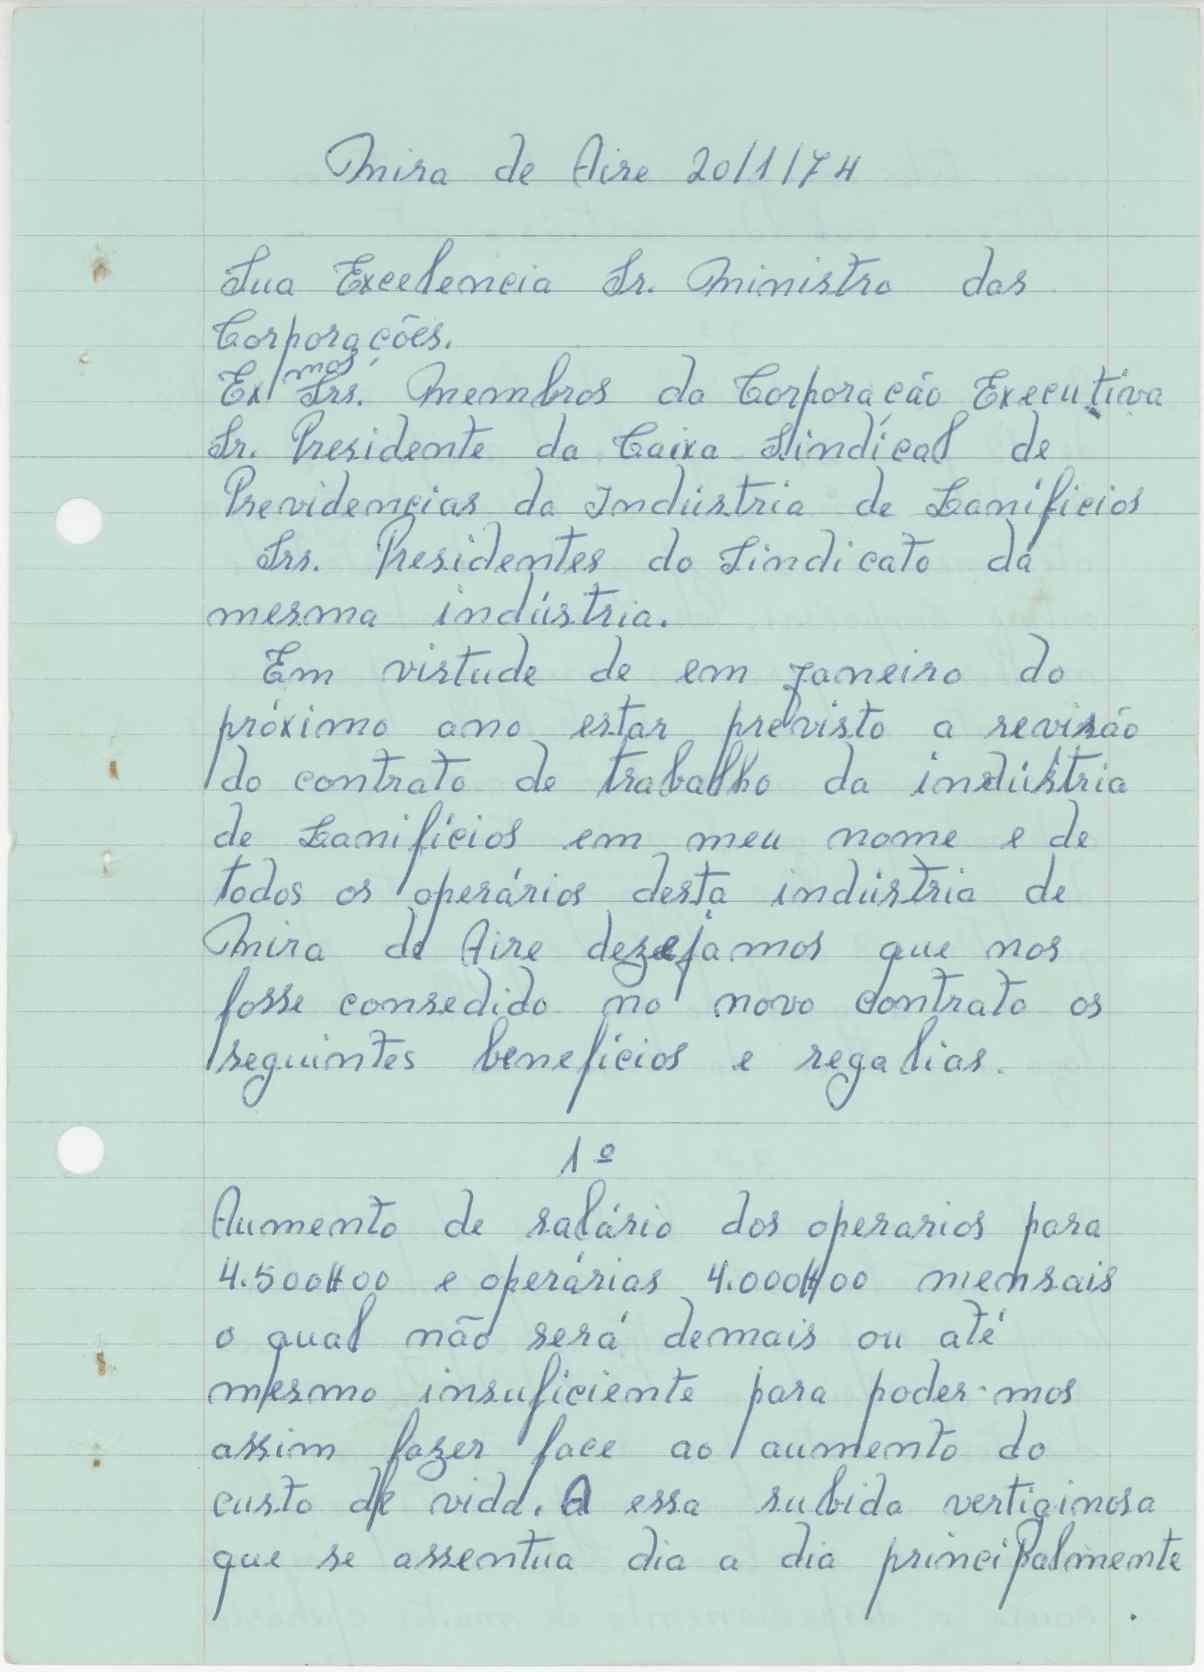 Mira de Aire 20/1/74
Sua Excelencia Sr. Ministro das
Corporações.
Exmos Srs. Membros da Corporação Executiva
Sr. Presidente da Caixa Sindical de
Previdencias da Indústria de Lanificios
Srs. Presidentes do Sindicato da
mesma indústria.
Em virtude de em Janeiro do
próximo ano estar previsto a revisão
do contrato de trabalho da indústria
de Lanifícios em meu nome e de
todos os operários desta indústria de
Mira de Aire dezejamos que nos
fosse consedido no novo contrato os
seguintes benefícios e regalias.
1º
Aumento de salário dos operarios para
4.500$00 e operárias 4.000$00 mensais
o qual não será demais ou até
mesmo insuficiente para poder-mos
assim fazer face ao aumento do
custo de vida. A essa subida vertiginosa
que se assentua dia a dia principalmente